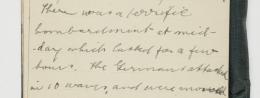 There was a terrific
bombardment at mid-
day which lasted for a few
hours. The Germans attacked
in 10 waves, and were